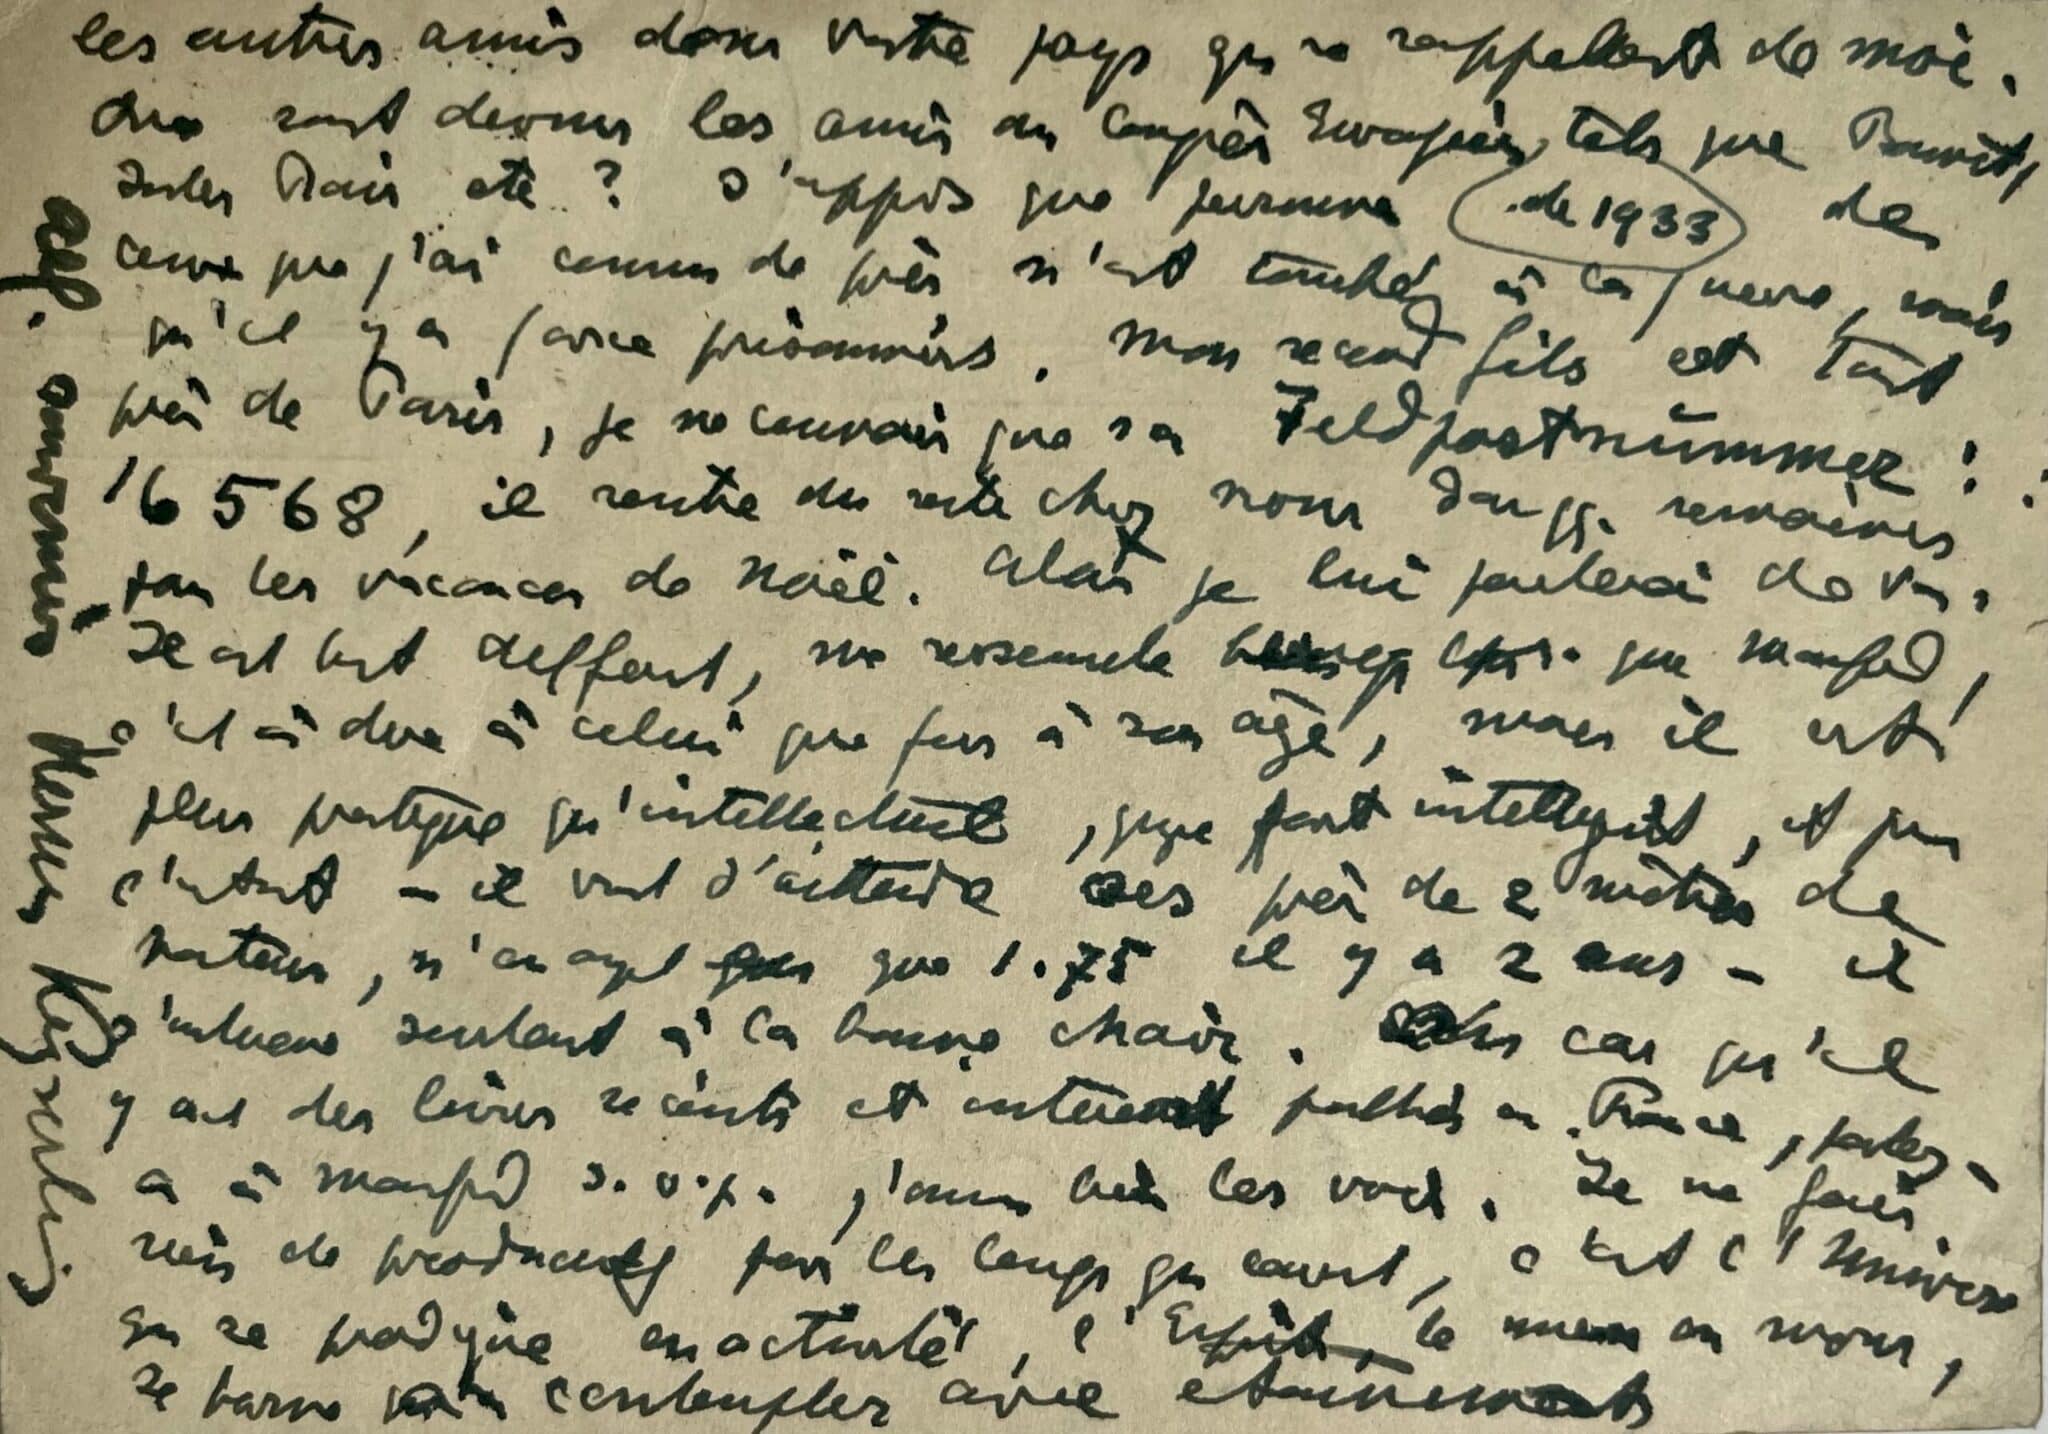 les autres amis dans votre pays qui se rappellent de moi.
Que sont devenus les amis du Congrès Européen, tels que
Jules Romains etc? J'appris que personne de 1933 de
ceux que j'ai connu de près n'est tombé à la guerre, mais
qu'il y a force prisonniers. Mon second fils est tout
près de Paris, je ne connais que sa Feldpostnummer:
16568, il rentre du reste chez nous dans qq. semaines
pour les vacances de Noël. Alors je lui parlerai de vous.
Il est tout différent, me ressemble plus que Manfred,
c'est à dire à celui que fus à son âge, mais il est
plus pratique qu'intellectuel, que fort intelligent, et pour
l'instant – il vient d'atteindre ses près de 2 mètres de
hauteur, n'en ayant que 1.75 il y a 2 ans – il
s'intéresse seulement à la bonne chair. Au cas qu'il
y ait des livres récents et intéressant publiés en France, parlez-
en à Manfred s.v.p., j'aimerais bien les voir. Je ne fais
rien de productif par les temps qui courent, c'est l'Univers
qui se prodigue en activité, l'Esprit, le mien en moins,
se borne à contempler avec étonnements
aff. souvenirs Hermann Keyserling